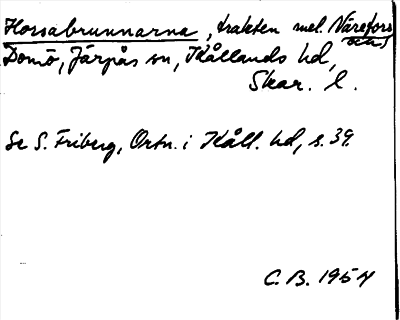 Horsabrunnarna, trakten mel. Närefors
och
Domö, Järpås sn, Kållands hd,
Skar. l.
Se S. Friberg, Ortn. i Kåll. hd, s. 39.
C. B. 1954